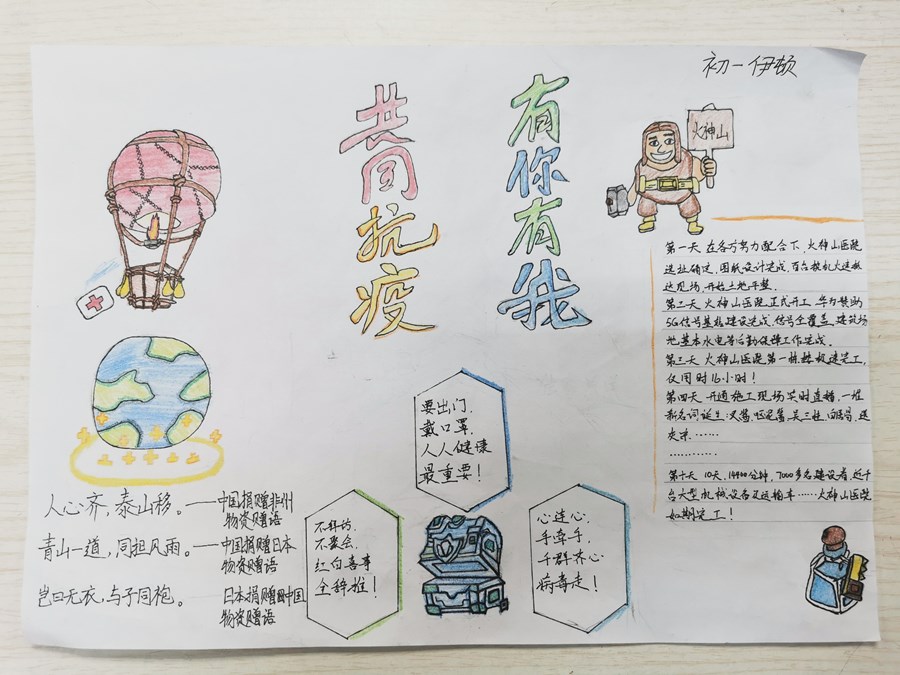 初一伊顿
共同抗疫
有你有我
火神山
第一天 在各方努力配合下,火神山医院
选址确定,图纸设计完成,百台挖机火速抵
达现场,开始土地平整.
第二天 火神山医院正式开工,华为赞助
5G信号基站建设完成,信号全覆盖,建筑场
地基本水电等后勤保障工作完成.
第三天 火神山医院第一栋样板建完工,
仅用时16小时!
第四天 开通施工现场实时直播,一堆
新名词诞生:叉酱,呕泥酱,吴三桂,白居易,送
灰宗.……
…………
第十天 10天,14400分钟,7000多名建设者,近千
台大型机械设备及运输车……火神山医院
如期完工!
要出门,
戴口罩,
人人健康
最重要!
不拜访,
不聚会,
红白喜事
全辞推!
心连心,
手牵手,
千群齐心
病毒走!
人心齐,泰山移。——中国捐赠非州
物资赠语
青山一道,同担风雨。——中国捐赠日本
物资赠语
岂曰无衣,与子同袍。 日本捐赠中国
物资赠语